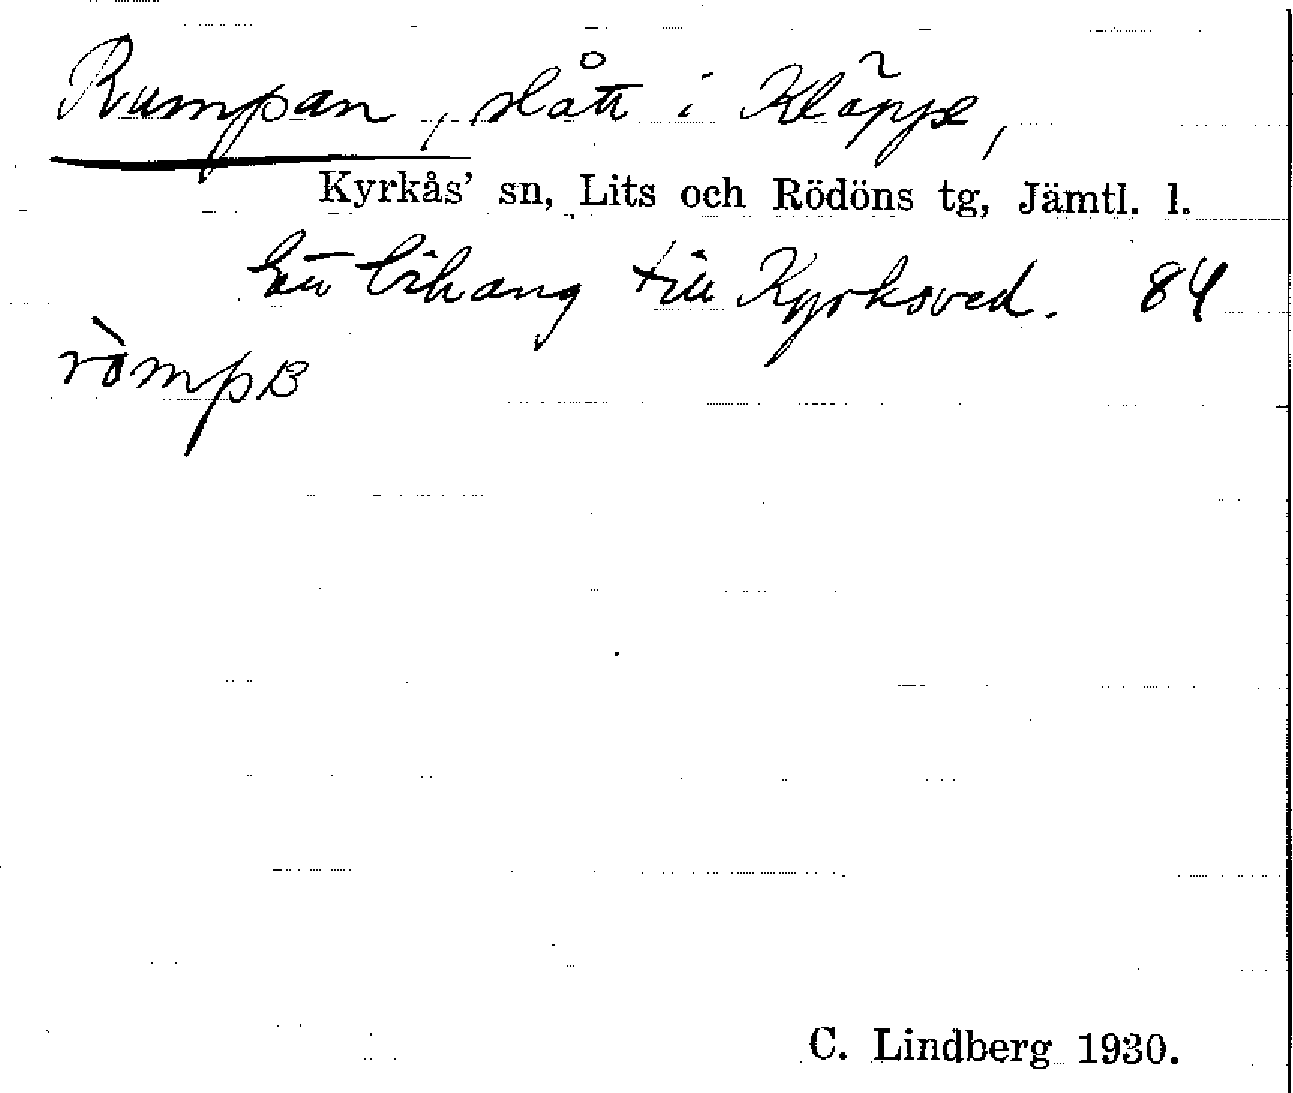 Rumpan, slått i Kläppe,
Kyrkås' sn, Lits och Rödöns tg, Jämtl. l.
Ett bihang till Kyrksved. 84
ròmpʙ
C. Lindberg 1930.